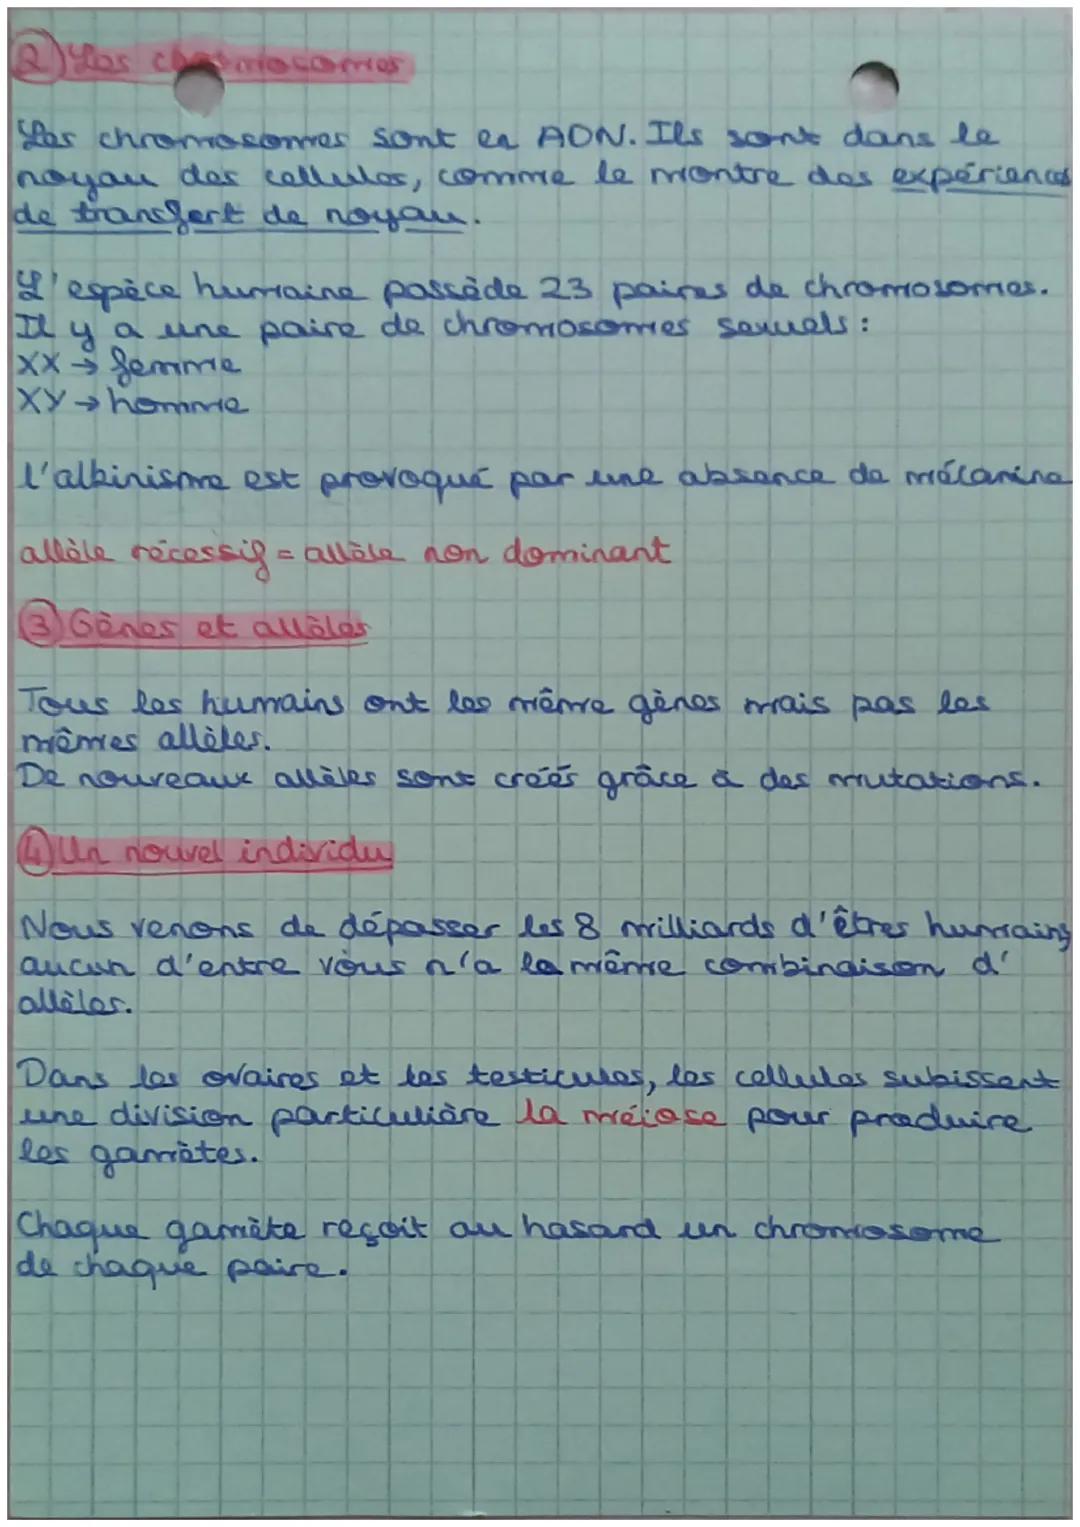 ② Les chromosomes
Les chromosomes sont en ADN. Ils sont dans le
noyau des cellules, comme le montre des expériences
de transfert de noyau.
L'espèce humaine possède 23 paires de chromosomes.
Il y a une paire de chromosomes sexuels :
XX → femme
XY → homme
l'albinisme est provoqué par une absence de mélanine
allèle récessif = allèle non dominant
③ Gènes et allèles
Tous les humains ont les même gènes mais pas les
mêmes allèles.
De nouveaux allèles sont créés grâce à des mutations.
④ Un nouvel individu
Nous venons de dépasser les 8 milliards d'êtres humains
aucun d'entre vous n'a la même combinaison d'
allèles.
Dans les ovaires et les testicules, les cellules subissent
une division particulière la méiose pour produire
les gamètes.
Chaque gamète reçoit au hasard un chromosome
de chaque paire.